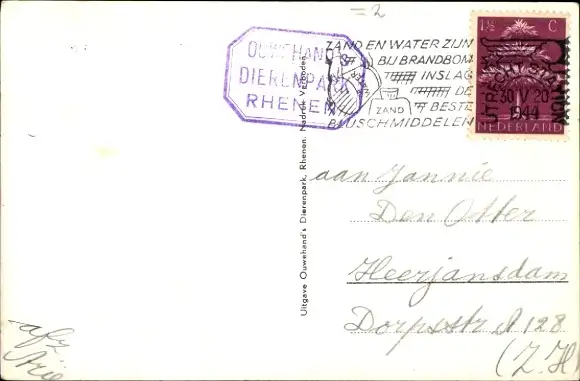 =2
OUWEHAND'S
DIERENPARK
RHENEN
ZAND EN WATER ZIJN
BIJ BRANDBOM
INSLAG
DE
ZAND BESTE
BLUSCHMIDDELEN
1½ C
UTRECHT STATION
30 V 20
1944
NEDERLAND
Uitgave Ouwehand's Dierenpark, Rhenen. Nadruk Verboden.
aan Jannie
Den Otter
Heerjansdam
Dorpsstr A 128
(Z.H)
afz.
Arie